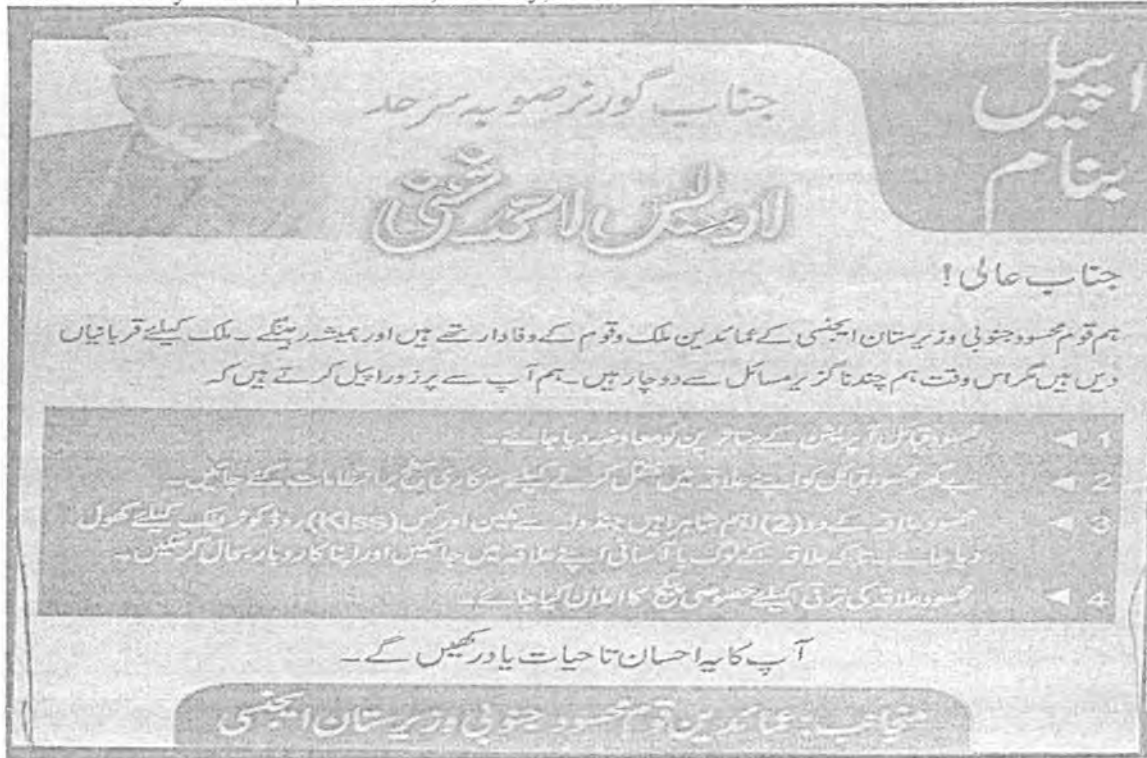 اپیل
بنام
جناب گورنر صوبہ سرحد
اویس احمد غنی
جناب عالی !
ہم قوم محسود جنوبی وزیرستان ایجنسی کے عمائدین ملک وقوم کے وفادار تھے ہیں اور ہمیشہ رہینگے ۔ ملک کیلئے قربانیاں
دیں ہیں مگر اس وقت ہم چند ناگزیر مسائل سے دوچار ہیں ۔ ہم آپ سے پرزور اپیل کرتے ہیں کہ
1 ◄ محسود قبائل آپریشن کے متاثرین کو معاوضہ دیا جائے ۔
2 ◄ بے گھر محسود قبائل کو اپنے علاقہ میں منتقل کرنے کیلئے سرکاری سطح پر انتظامات کئے جائیں ۔
3 ◄ محسود علاقہ کے دو (2) اہم شاہراہیں جنڈولہ سے مکین اور کس (Kiss) روڈ کو ٹریفک کیلئے کھول
دیا جائے ۔ تاکہ علاقہ کے لوگ با آسانی اپنے علاقہ میں جاسکیں اور اپنا کاروبار بحال کرسکیں ۔
4 ◄ محسود علاقہ کی ترقی کیلئے خصوصی پیکج کا اعلان کیا جائے ۔
آپ کا یہ احسان تا حیات یاد رکھیں گے ۔
منجانب : عمائدین قوم محسود جنوبی وزیرستان ایجنسی